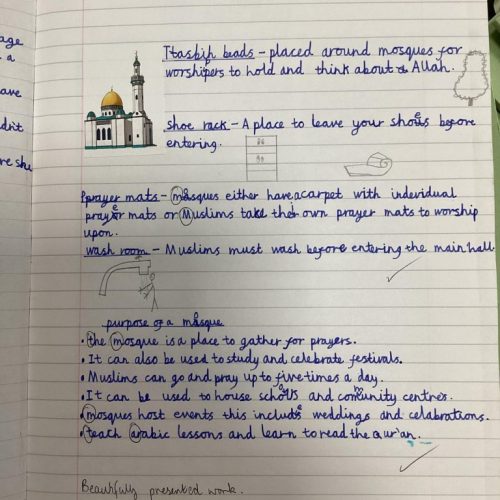 age
a
ave
dn't
re she
Ttasbih beads - placed around mosques for
worshipers to hold and think about Allah.
shoe rack - A place to leave your shoes before
entering.
prayer mats - mosques either have a carpet with indevidual
prayer mats or Muslims take their own prayer mats to worship
upon.
wash room - Muslims must wash before entering the main hall
purpose of a mosque
• the mosque is a place to gather for prayers.
• It can also be used to study and celebrate festivals.
• Muslims can go and pray up to five times a day.
• It can be used to house schools and comunity centres.
• mosques host events this include weddings and celabrations.
• teach arabic lessons and learn to read the Qur'an.
Beautifully presented work.